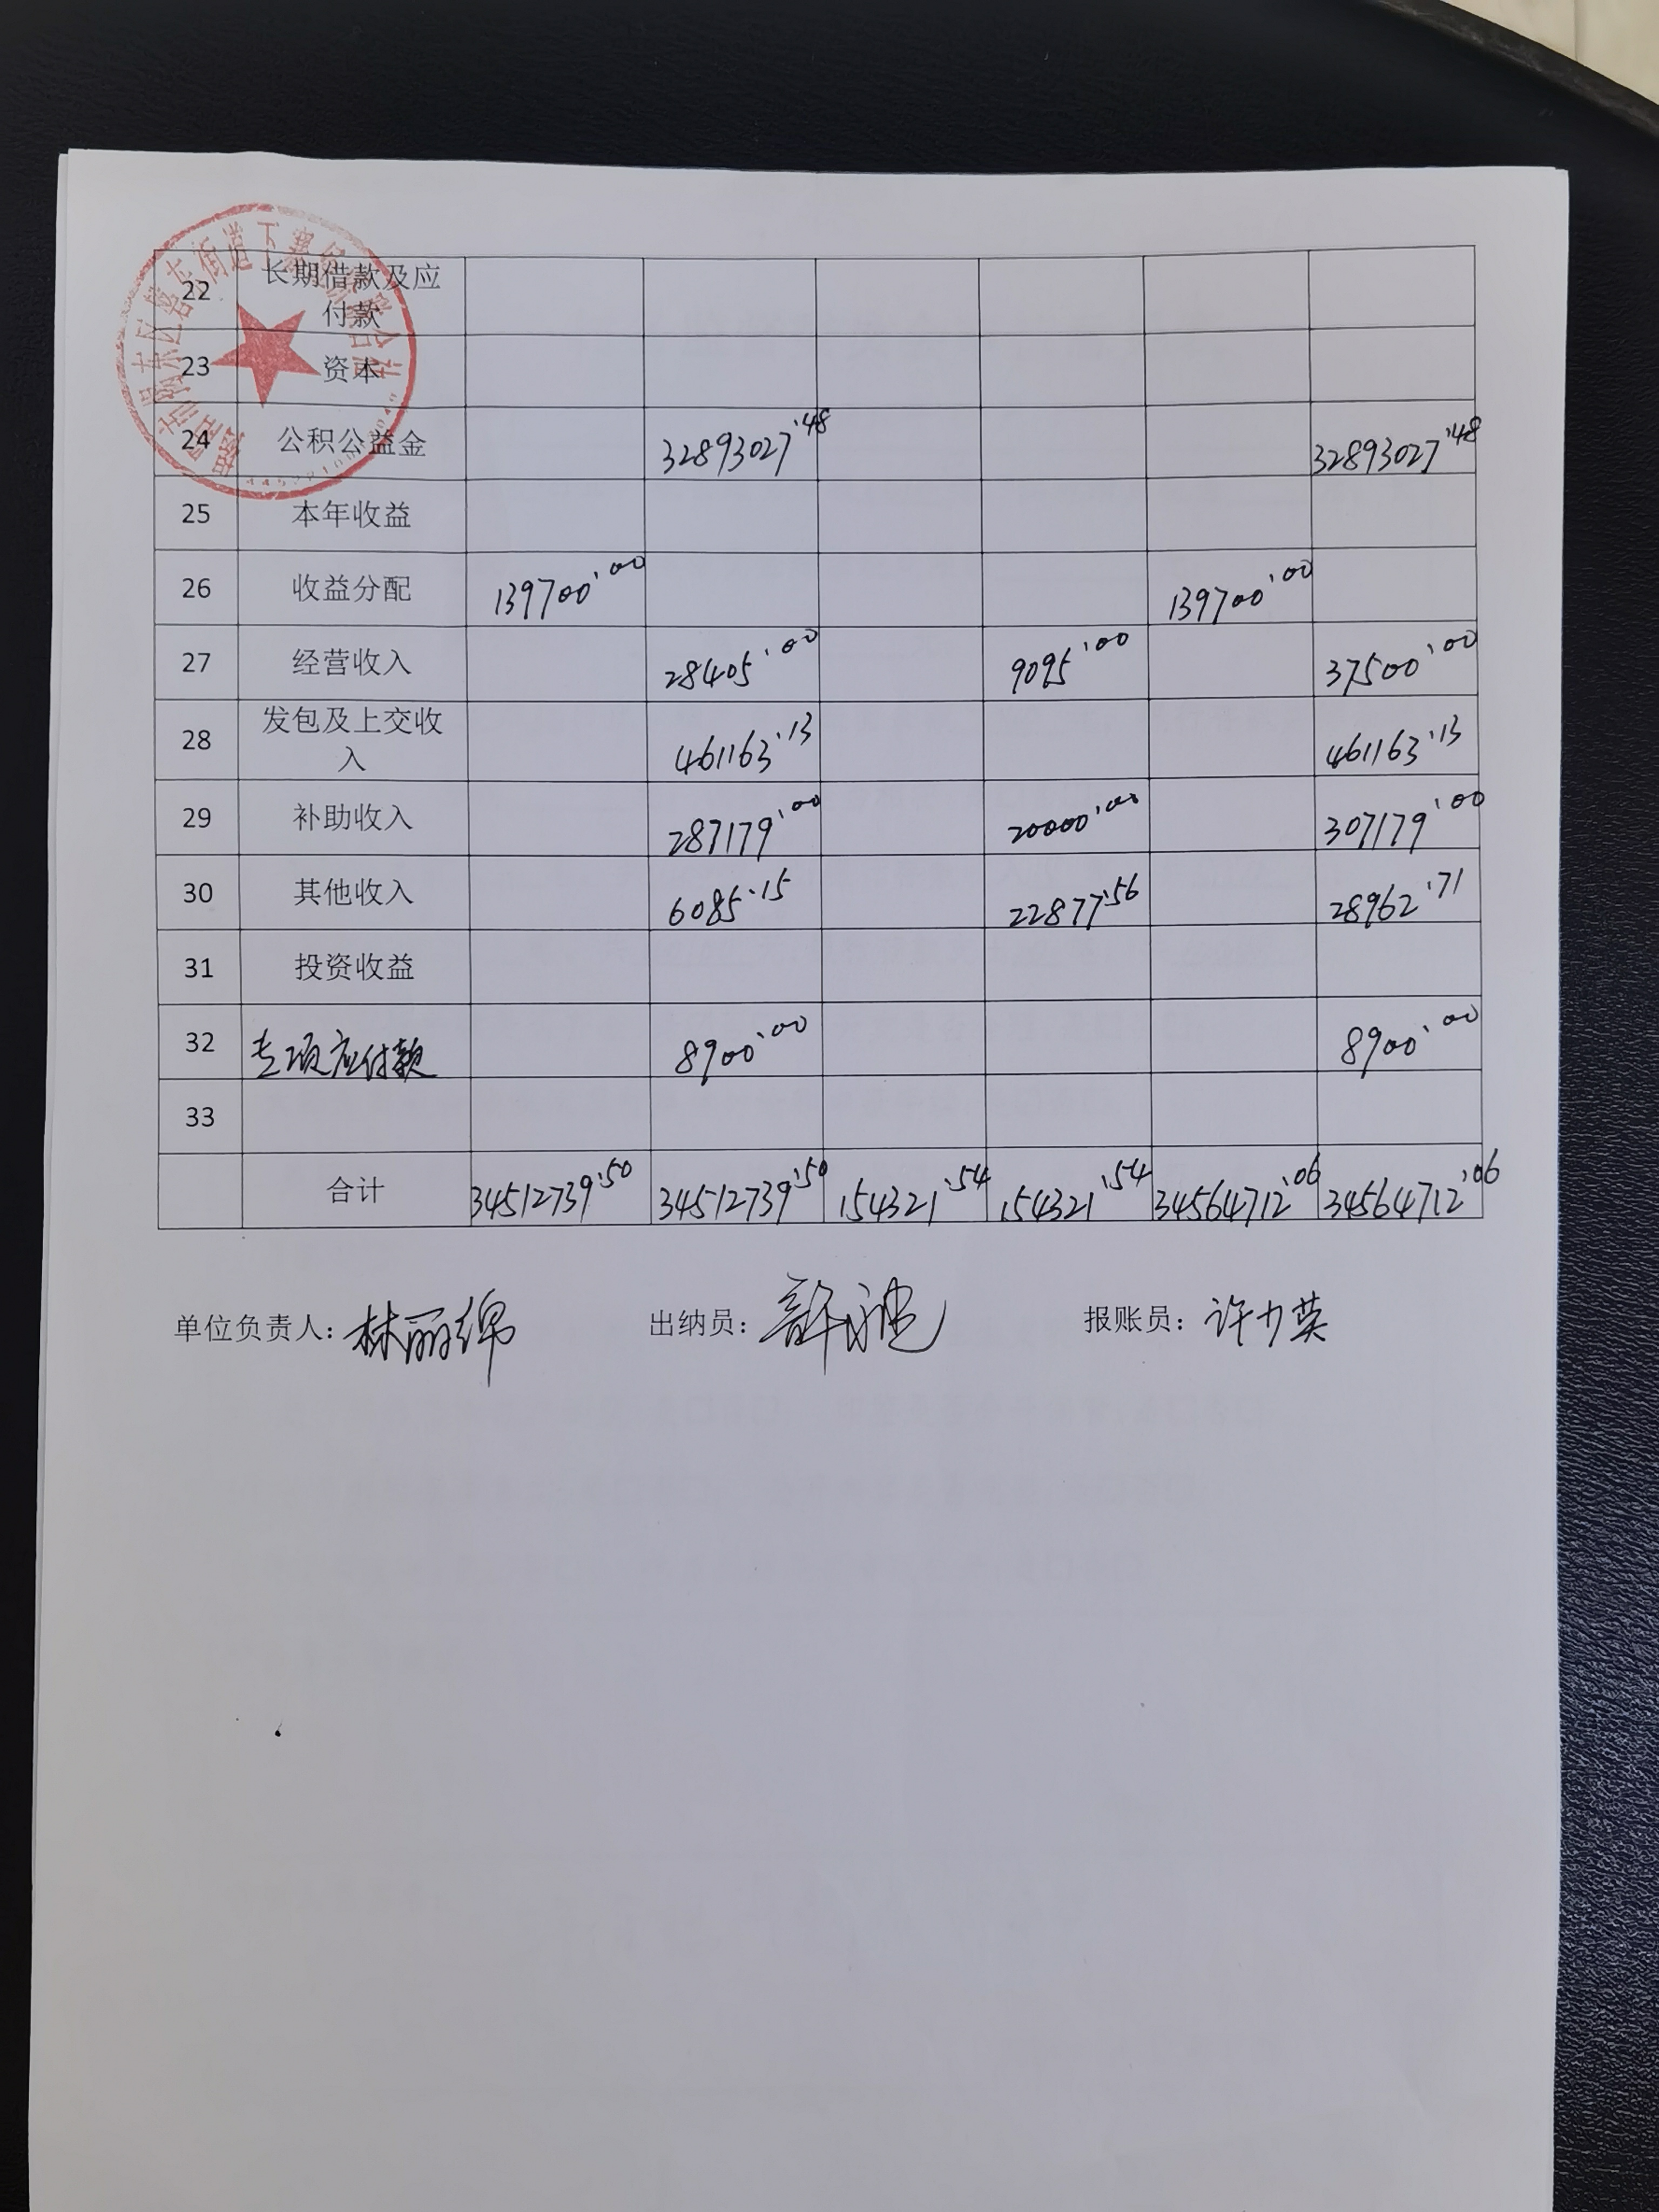 22 长期借款及应
付款
23 资本
24 公积公益金 32893027.48 32893027.48
25 本年收益
26 收益分配 139700.00 139700.00
27 经营收入 28405.00 9095.00 37500.00
28 发包及上交收
入 461163.13 461163.13
29 补助收入 287179.00 20000.00 307179.00
30 其他收入 6085.15 22877.56 28962.71
31 投资收益
32 专项应付款 8900.00 8900.00
33
合计 34512739.50 34512739.50 154321.54 154321.54 34564712.06 34564712.06
单位负责人：林丽绵 出纳员： 报账员：许力英